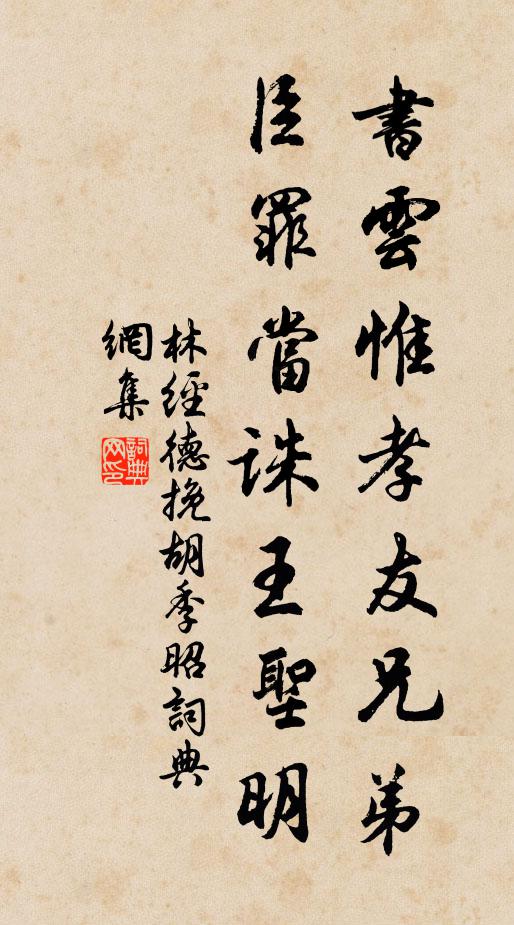 書雲惟孝友兄弟
臣罪當誅王聖明
林經德挽胡季昭詞典
網集
詞典
网印